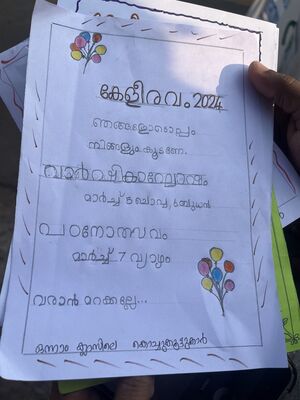 കേളീരവം 2024
ഞങ്ങളോടൊപ്പം
നിങ്ങളും കൂടണേ.
വാർഷികാഘോഷം
മാർച്ച് 5 ചൊവ്വ, 6 ബുധൻ
പഠനോത്സവം
മാർച്ച് 7 വ്യാഴം
വരാൻ മറക്കല്ലേ...
ഒന്നാം ക്ലാസിലെ കൊച്ചുകൂട്ടുകാർ